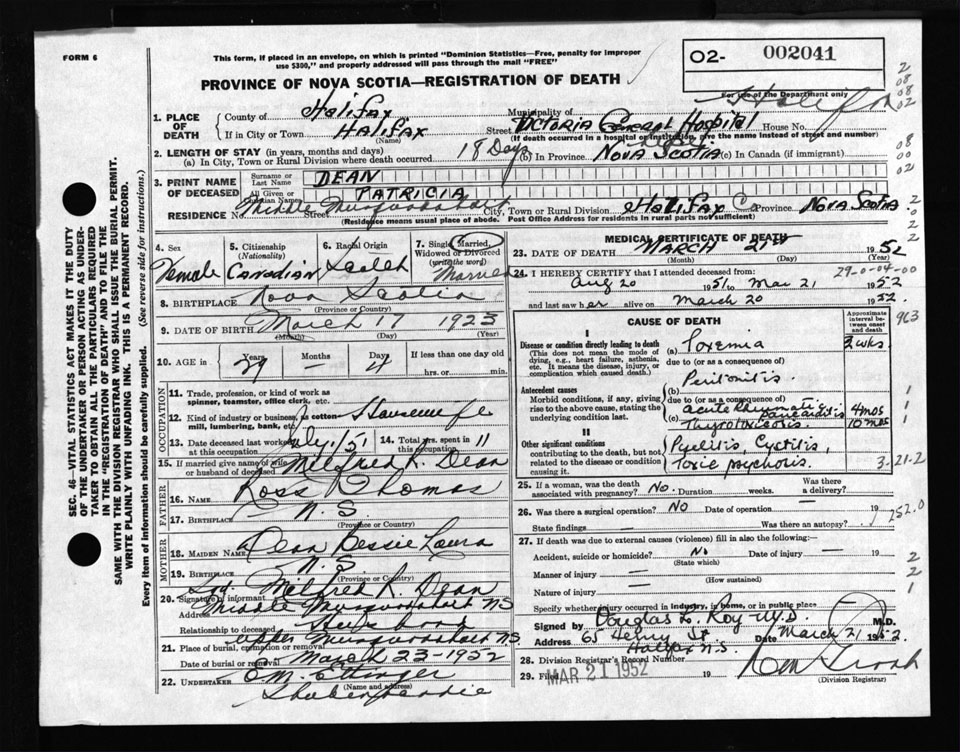 FORM 6
This form, if placed in an envelope, on which is printed "Dominion Statistics—Free, penalty for improper
use $300," and properly addressed will pass through the mail "FREE"
O2- 002041
For use of the Department only
PROVINCE OF NOVA SCOTIA—REGISTRATION OF DEATH
Halifax
1. PLACE OF DEATH
County of Halifax
Municipality of
If in City or Town HALIFAX
(Name)
Street Victoria General Hospital House No.
(If death occurred in a hospital or institution, give the name instead of street and number)
2. LENGTH OF STAY (in years, months and days)
(a) In City, Town or Rural Division where death occurred 18 Days (b) In Province NOVA SCOTIA (c) In Canada (if immigrant)
3. PRINT NAME OF DECEASED
Surname or Last Name DEAN
All Given or Christian Names PATRICIA
RESIDENCE No. Middle Musquodoboit Street City, Town or Rural Division Halifax Co Province Nova Scotia
(Residence means usual place of abode. Post Office Address for residents in rural parts not sufficient)
4. Sex
Female
5. Citizenship
(Nationality)
Canadian
6. Racial Origin
7. Single, Married,
Widowed or Divorced
(write the word)
Married
8. BIRTHPLACE Nova Scotia
(Province or Country)
9. DATE OF BIRTH March 17 1923
(Month) (Day) (Year)
10. AGE in Years Months Days If less than one day old
29 4 hrs. or min.
OCCUPATION
11. Trade, profession, or kind of work as
spinner, teamster, office clerk, etc.
12. Kind of industry or business, as cotton
mill, lumbering, bank, etc.
Housewife
13. Date deceased last worked
at this occupation July /51
14. Total yrs. spent in
this occupation 11
15. If married give name of wife
or husband of deceased Milfred R. Dean
FATHER
16. NAME Ross Thomas
17. BIRTHPLACE N. S.
(Province or Country)
MOTHER
18. MAIDEN NAME Dean Bessie Laura
19. BIRTHPLACE N. S.
(Province or Country)
20. Signature of informant Milfred R. Dean
Address Middle Musquodoboit NS
Relationship to deceased Husband
21. Place of burial, cremation or removal Musquodoboit N.S.
Date of burial or removal March 23-1952
22. UNDERTAKER E M. Ettinger
(Name and address)
Shubenacadie
MEDICAL CERTIFICATE OF DEATH
23. DATE OF DEATH MARCH 21st 1952
(Month) (Day)
29-0-04-00
24. I HEREBY CERTIFY that I attended deceased from:
Aug 20 1951 to Mar 21 1952
and last saw her alive on March 20 1952.
963
CAUSE OF DEATH
Approximate interval between onset and death
I
Disease or condition directly leading to death
(This does not mean the mode of
dying, e.g., heart failure, asthenia,
etc. It means the disease, injury, or
complication which caused death.)
(a) Toxemia 2 wks
due to (or as a consequence of)
Antecedent causes
Morbid conditions, if any, giving
rise to the above cause, stating the
underlying condition last.
(b) Peritonitis.
due to (or as a consequence of)
(c) acute Rheumatic Pancarditis 4 mos
Thyrotoxicosis. 10 mos
II
Other significant conditions
contributing to the death, but not
related to the disease or condition
causing it.
Pyelitis, Cystitis,
Toxic psychosis.
3-21-2
25. If a woman, was the death
associated with pregnancy? No. Duration weeks. Was there a delivery?
26. Was there a surgical operation? NO Date of operation — 19
State findings — Was there an autopsy?
252.0
27. If death was due to external causes (violence) fill in also the following:—
Accident, suicide or homicide? No Date of injury — 19
(State which)
Manner of injury —
(How sustained)
Nature of injury —
Specify whether injury occurred in industry, in home, or in public place
Signed by Douglas L. Roy M.D. M.D.
Address 65 Henry St Date March 21 1952.
Halifax N.S.
28. Division Registrar's Record Number
29. Filed MAR 21 1952 19
(Division Registrar)
SEC. 46—VITAL STATISTICS ACT MAKES IT THE DUTY
OF THE UNDERTAKER OR PERSON ACTING AS UNDER-
TAKER TO OBTAIN ALL THE PARTICULARS REQUIRED
IN THE "REGISTRATION OF DEATH" AND TO FILE THE
SAME WITH THE DIVISION REGISTRAR WHO SHALL ISSUE THE BURIAL PERMIT.
WRITE PLAINLY WITH UNFADING INK. THIS IS A PERMANENT RECORD.
Every item of information should be carefully supplied. (See reverse side for instructions.)